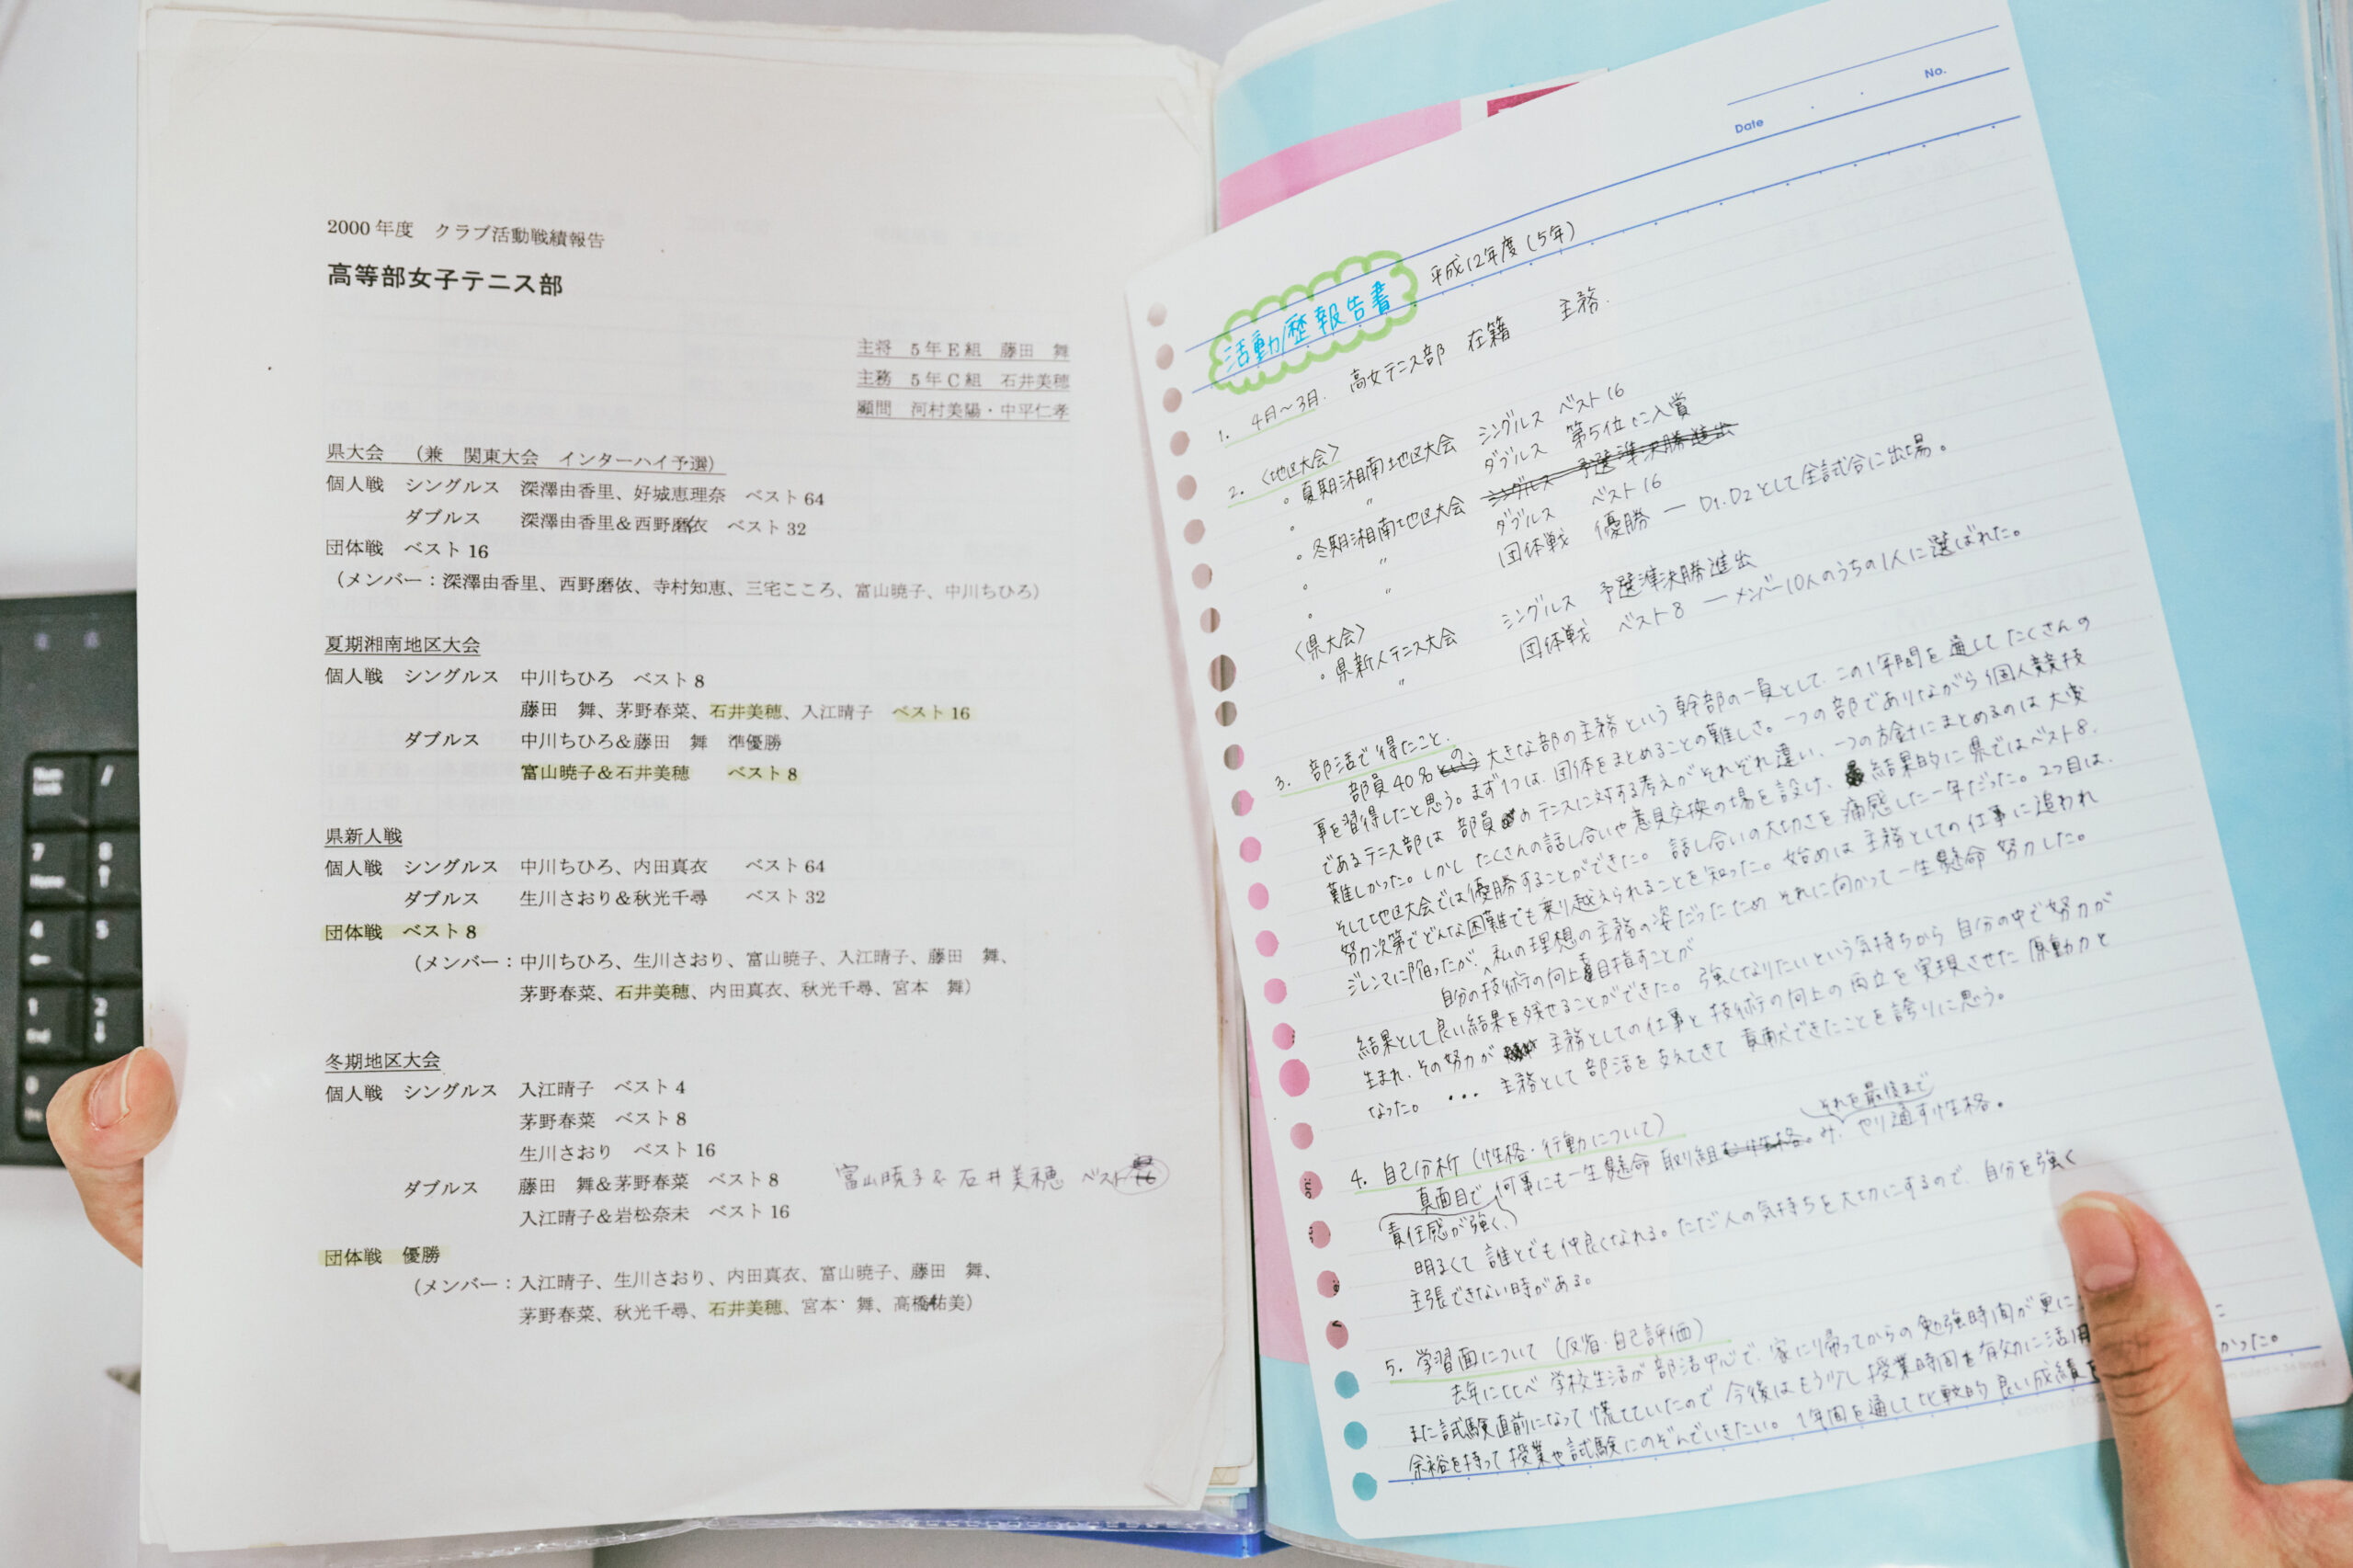 2000年度 クラブ活動戦績報告
高等部女子テニス部
主将 5年E組 藤田 舞
主務 5年C組 石井美穂
顧問 河村美陽・中平仁孝
県大会 （兼 関東大会 インターハイ予選）
個人戦 シングルス 深澤由香里、好城恵理奈 ベスト64
ダブルス 深澤由香里&西野磨衣 ベスト32
団体戦 ベスト16
（メンバー：深澤由香里、西野磨依、寺村知恵、三宅こころ、富山暁子、中川ちひろ）
夏期湘南地区大会
個人戦 シングルス 中川ちひろ ベスト8
藤田 舞、茅野春菜、石井美穂、入江晴子 ベスト16
ダブルス 中川ちひろ&藤田 舞 準優勝
富山暁子&石井美穂 ベスト8
県新人戦
個人戦 シングルス 中川ちひろ、内田真衣 ベスト64
ダブルス 生川さおり&秋光千尋 ベスト32
団体戦 ベスト8
（メンバー：中川ちひろ、生川さおり、富山暁子、入江晴子、藤田 舞、
茅野春菜、石井美穂、内田真衣、秋光千尋、宮本 舞）
冬期地区大会
個人戦 シングルス 入江晴子 ベスト4
茅野春菜 ベスト8
生川さおり ベスト16
ダブルス 藤田 舞&茅野春菜 ベスト8 富山暁子&石井美穂 ベスト16
入江晴子&岩松奈未 ベスト16
団体戦 優勝
（メンバー：入江晴子、生川さおり、内田真衣、富山暁子、藤田 舞、
茅野春菜、秋光千尋、石井美穂、宮本 舞、高橋祐美）
No.
Date
活動歴報告書 平成12年度（5年）
1. 4月〜3月. 高女テニス部 在籍 主務.
2. 〈地区大会〉
・夏期湘南地区大会 シングルス ベスト16
・ 〃 ダブルス 第5位に入賞
・冬期湘南地区大会 シングルス 予選準決勝進出
・ 〃 ダブルス ベスト16
・ 〃 団体戦 優勝 — D1.D2として全試合に出場。
〈県大会〉
・県新人テニス大会 シングルス 予選準決勝進出
〃 団体戦 ベスト8 — メンバー10人のうちの1人に選ばれた。
3. 部活で得たこと.
部員40名の大きな部の主務という幹部の一員として、この1年間を通してたくさんの
事を習得したと思う。まず1つは、団体をまとめることの難しさ。一つの部でありながら個人競技
であるテニス部は部員のテニスに対する考えがそれぞれ違い、一つの方針にまとめるのは大変
難しかった。しかしたくさんの話し合いや意見交換の場を設け、結果的に県ではベスト8、
そして地区大会では優勝することができた。話し合いの大切さを痛感した一年だった。2つ目は、
努力次第でどんな困難でも乗り越えられることを知った。始めは主務としての仕事に追われ
ジレンマに陥ったが、私の理想の主務の姿だったためそれに向かって一生懸命努力した。
自分の技術の向上を目指すことが
結果として良い結果を残せることができた。強くなりたいという気持ちから自分の中で努力が
生まれ、その努力が主務としての仕事と技術の向上の両立を実現させた原動力と
なった。 ・・・ 主務として部活を支えてきて貢献できたことを誇りに思う。
4. 自己分析（性格・行動について）
それを最後まで
真面目で何事にも一生懸命取り組む性格。み、やり通す性格。
責任感が強く、
明るくて誰とでも仲良くなれる。ただ人の気持ちを大切にするので、自分を強く
主張できない時がある。
5. 学習面について（反省・自己評価）
去年に比べ学校生活が部活中心で、家に帰ってからの勉強時間が更に
また試験直前になって慌てていたので今後はもう少し授業時間を有効に活用 かった。
余裕を持って授業や試験にのぞんでいきたい。1年間を通して比較的良い成績
Num Lock
/
7
Home
8
4
5
1
End
2
0